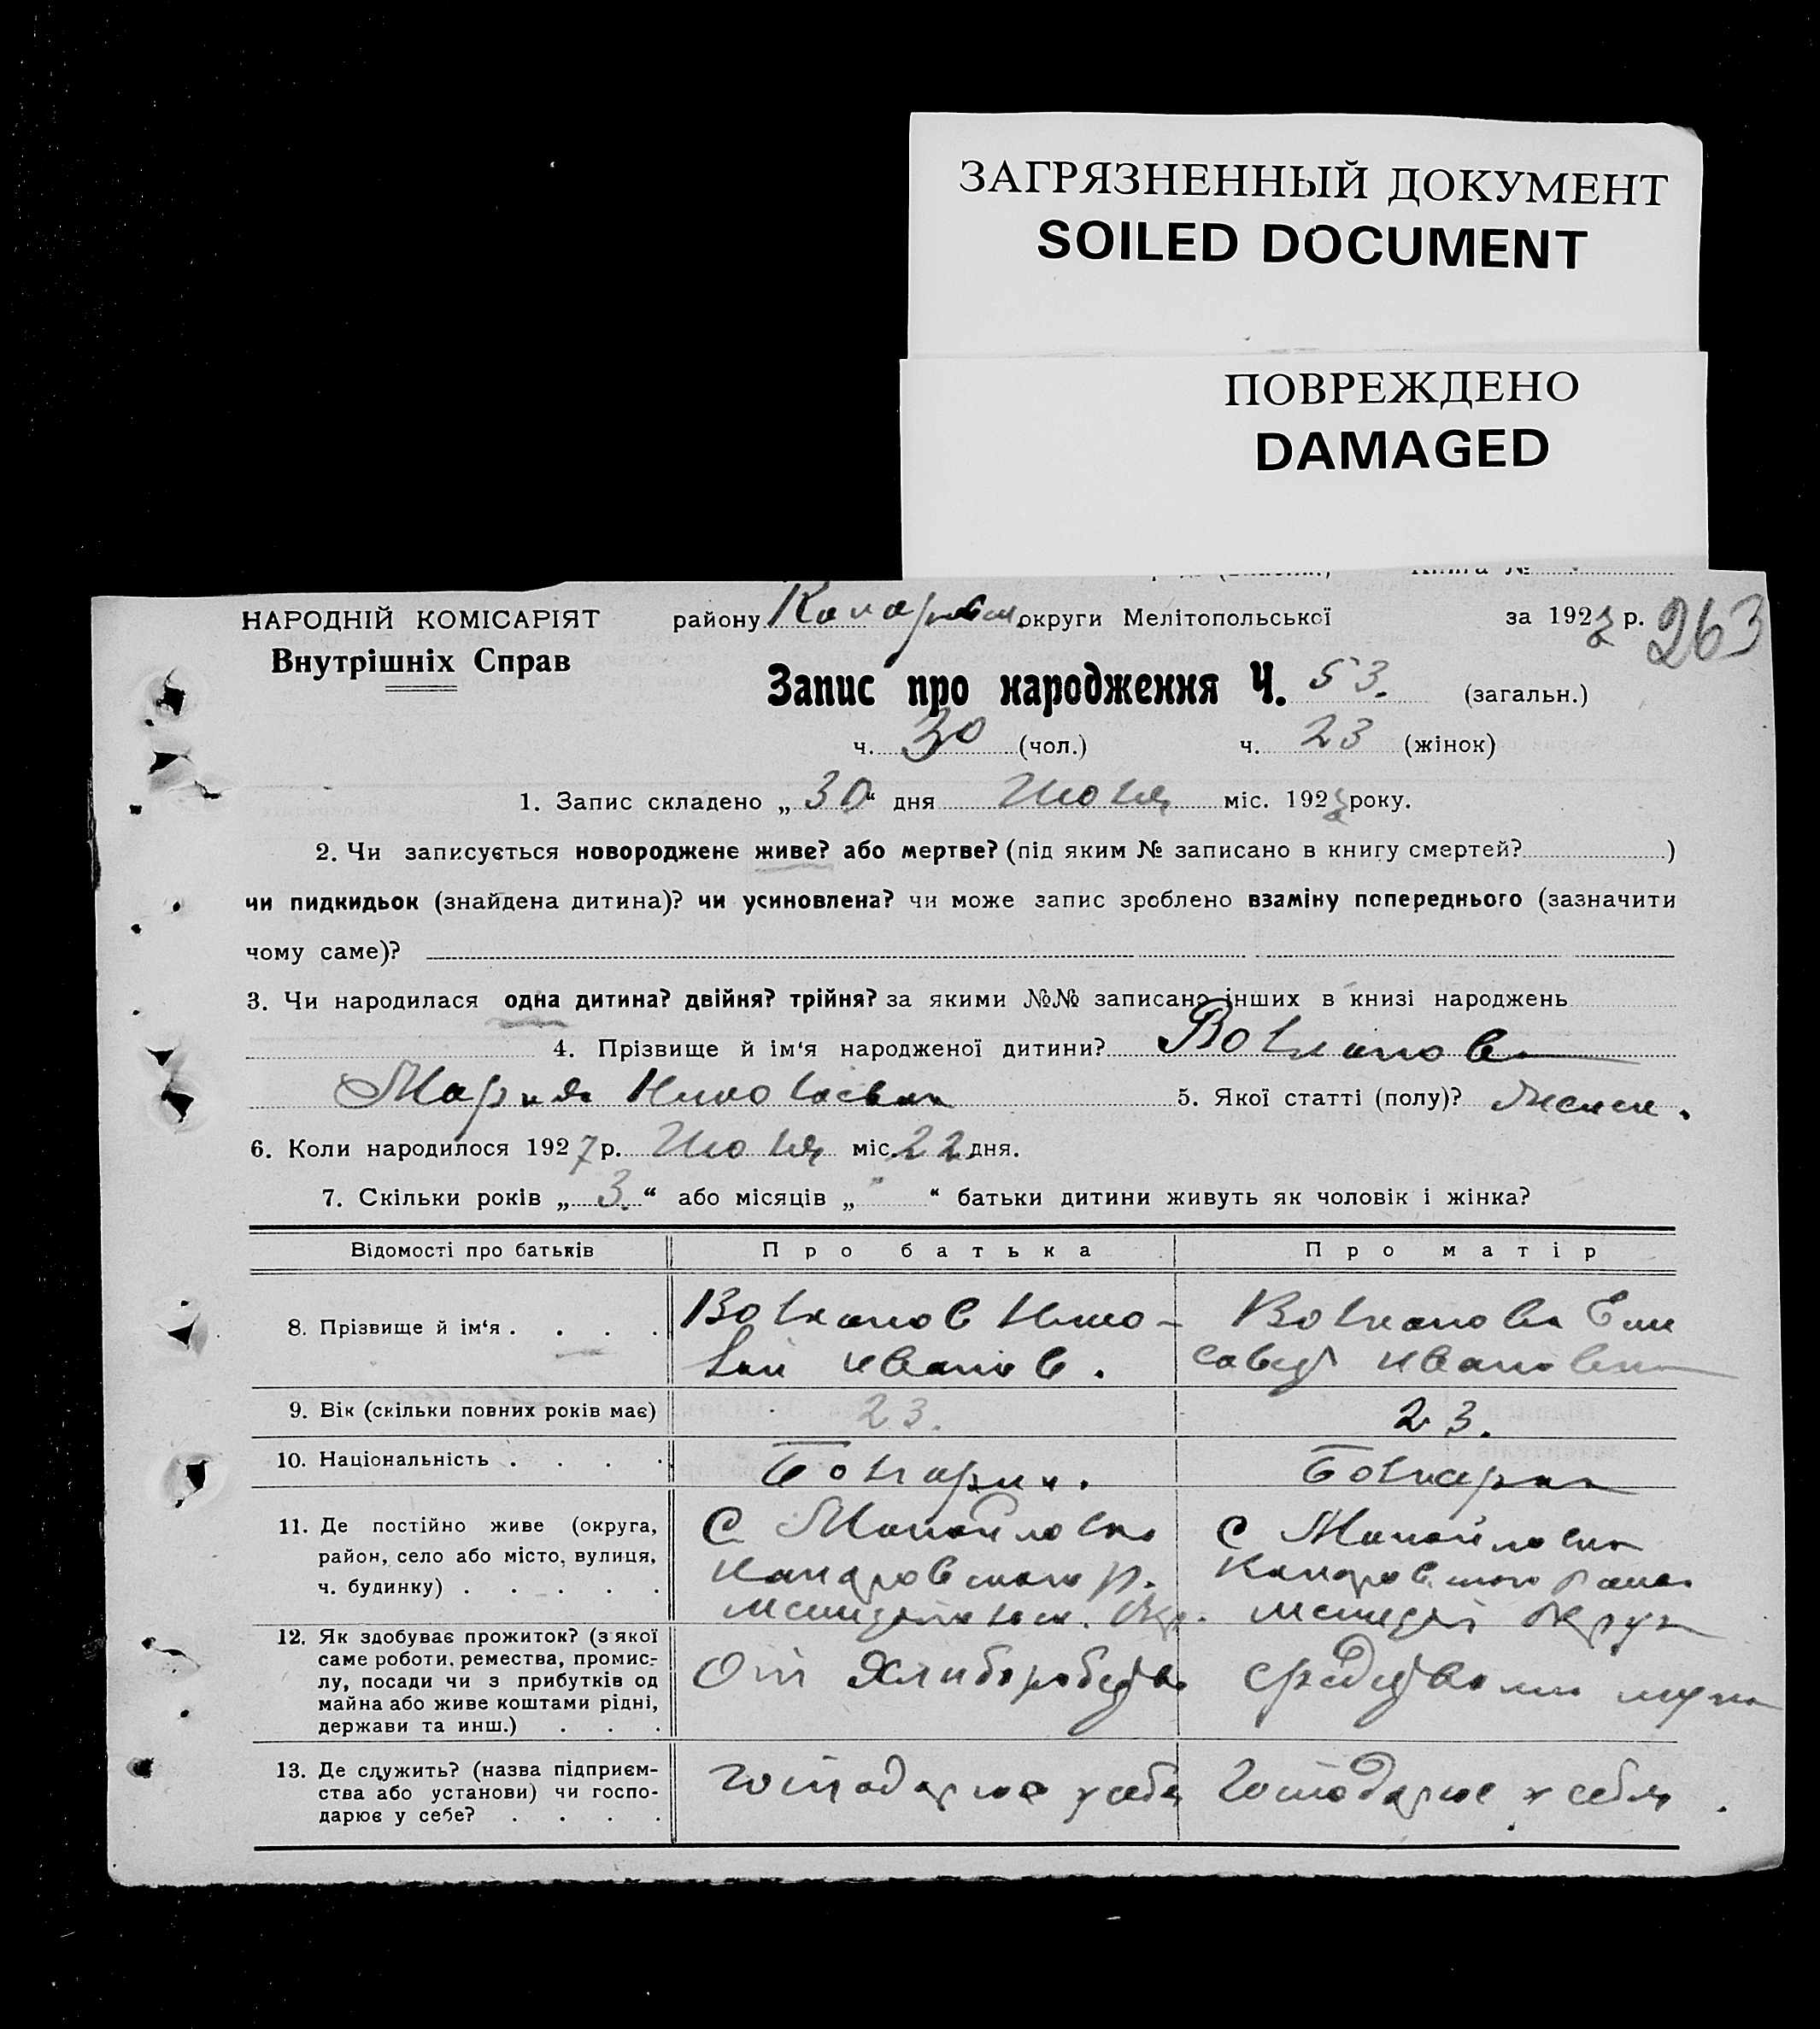 ЗАГРЯЗНЕННЫЙ ДОКУМЕНТ
SOILED DOCUMENT
ПОВРЕЖДЕНО
DAMAGED
НАРОДНІЙ КОМІСАРІЯТ
Внутрішніх Справ
району округи Мелітопольської за 1927 р. 263
Запис про народження Ч. 53. (загальн.)
ч. 30 (чол.) ч. 23 (жінок)
1. Запис складено „ 30 “ дня Июля міс. 1927 року.
2. Чи записується новороджене живе? або мертве? (під яким № записано в книгу смертей? )
чи пидкидьок (знайдена дитина)? чи усиновлена? чи може запис зроблено взаміну попереднього (зазначити
чому саме)?
3. Чи народилася одна дитина? двійня? трійня? за якими №№ записано інших в книзі народжень
4. Прізвище й ім‘я народженої дитини? Волканова
Мария Николаевна 5. Якої статті (полу)? Женск.
6. Коли народилося 1927 р. Июля міс. 22 дня.
7. Скільки років „ 3. “ або місяців „ “ батьки дитини живуть як чоловік і жінка?
Відомості про батьків Про батька Про матір
8. Прізвище й ім‘я . . . . Волканов Нико- Волканова Ели
лай Иванов. савет Ивановна
9. Вік (скільки повних років має) 23. 23.
10. Національність . . . . Болгарин. Болгарка
11. Де постійно живе (округа, С Манойловка С Манойловка
район, село або місто, вулиця,
ч. будинку) . . . . .
12. Як здобуває прожиток? (з якої
саме роботи, ремества, промис-
лу, посади чи з прибутків од От Хлиборобства средствами мужа
майна або живе коштами рідні,
держави та инш.) . . .
13. Де служить? (назва підприєм-
ства або установи) чи госпо- Господарює у себя Господарює у себя.
дарює у себе? . . . .